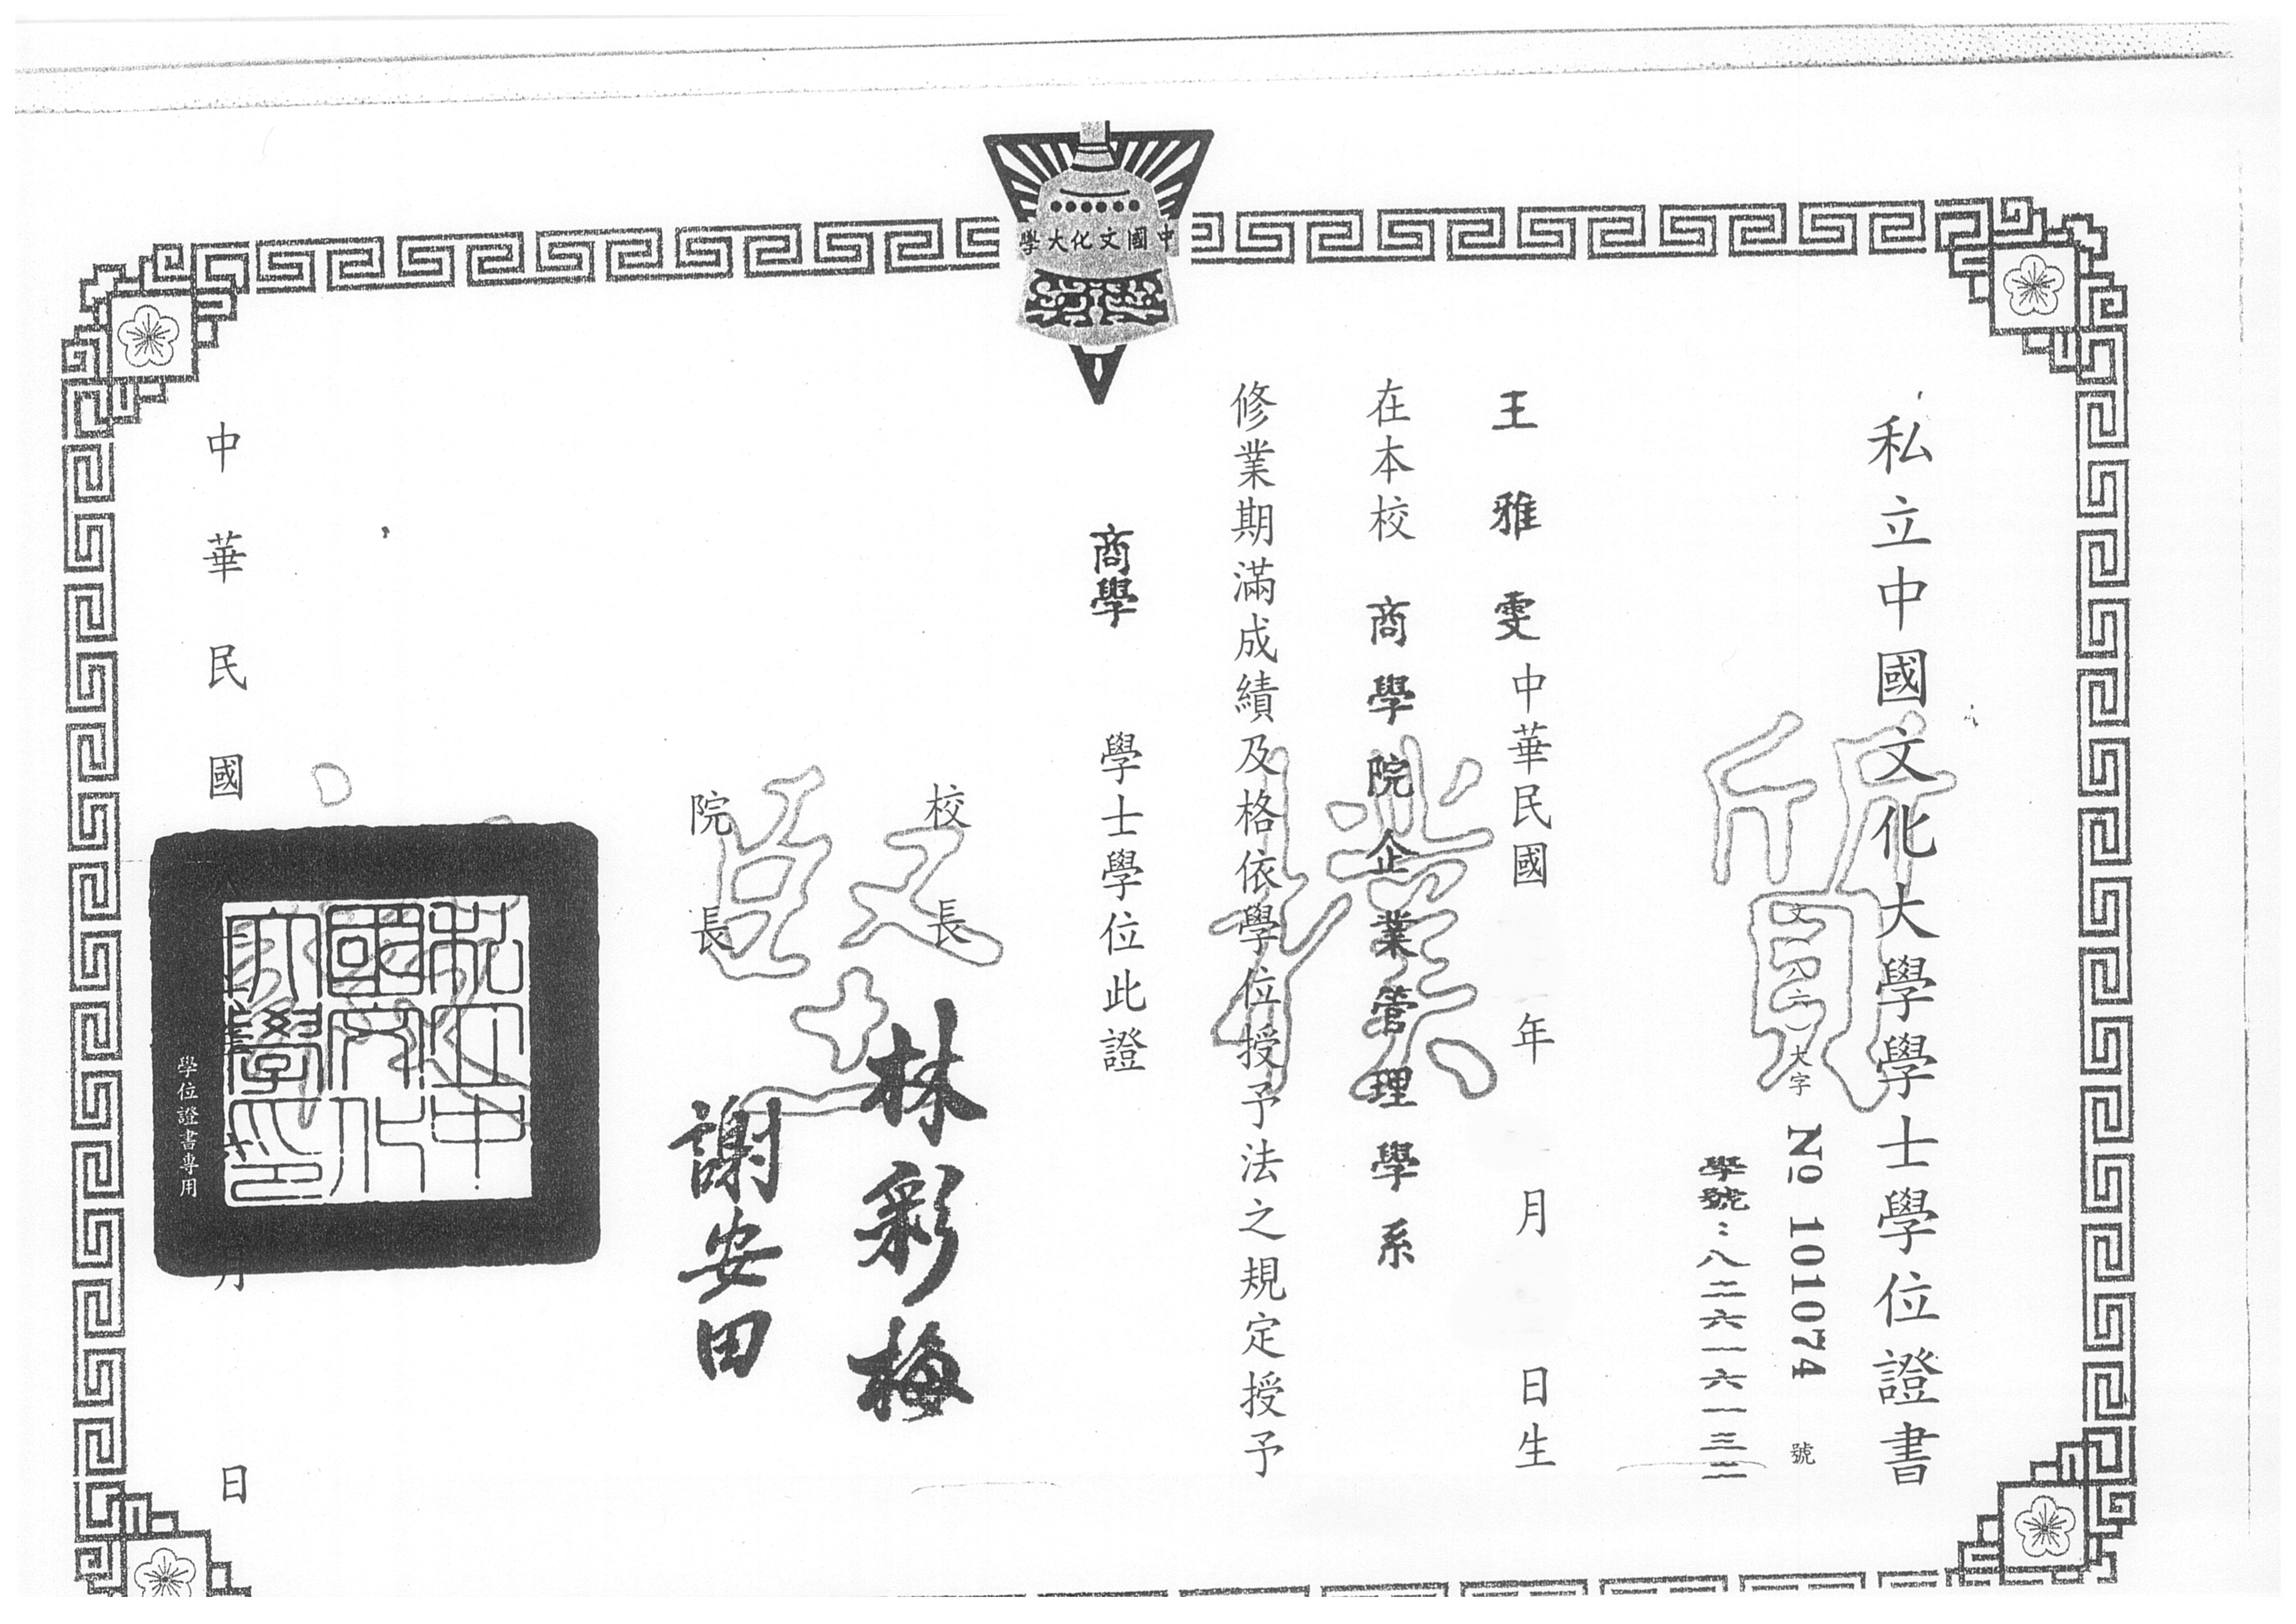 中國文化大學
私立中國文化大學學士學位證書
文(八六)大字 № 101074 號
學號：八二六一六一三二
王雅雯 中華民國 年 月 日生
在本校 商學院企業管理學系
修業期滿成績及格依學位授予法之規定授予
商學 學士學位此證
校長 林彩梅
院長 謝安田
中華民國 月 日
私立中
國文化
大學印
學位證書專用